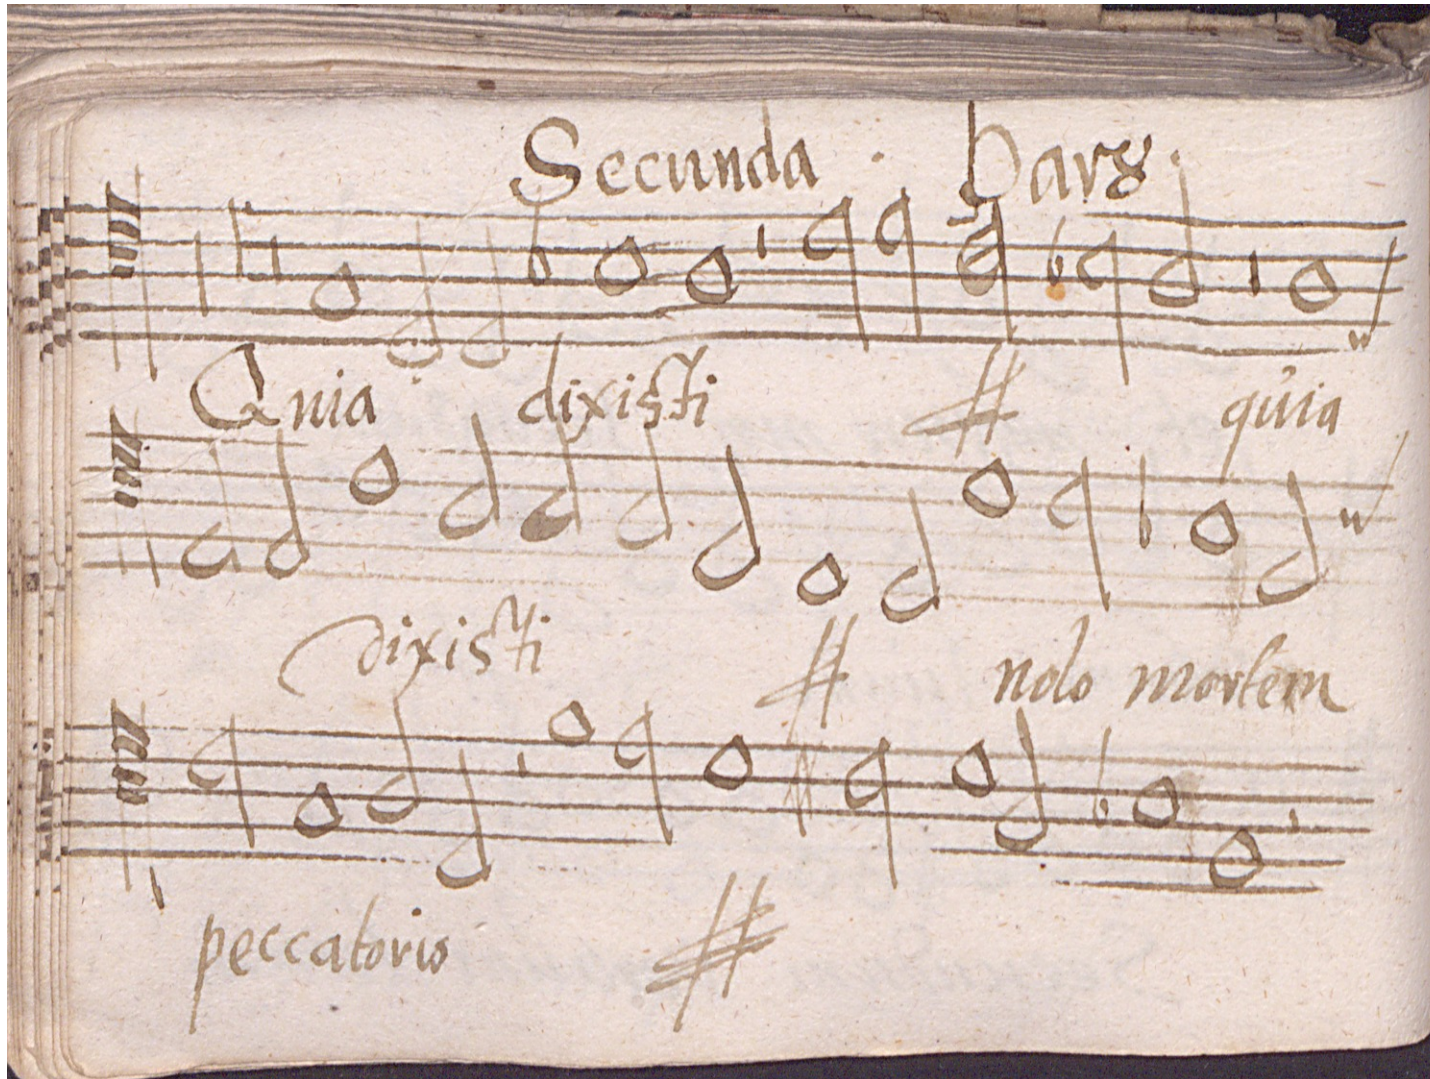 Secunda . pars .
Quia dixisti quia
dixisti nolo mortem
peccatoris